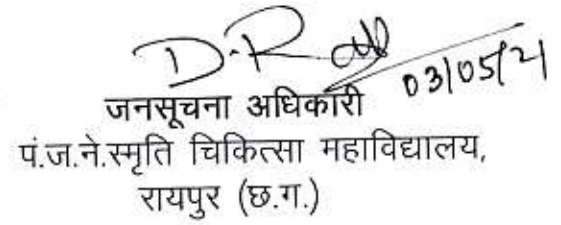 03/05/21
जनसूचना अधिकारी
पं.ज.ने.स्मृति चिकित्सा महाविद्यालय,
रायपुर (छ.ग.)